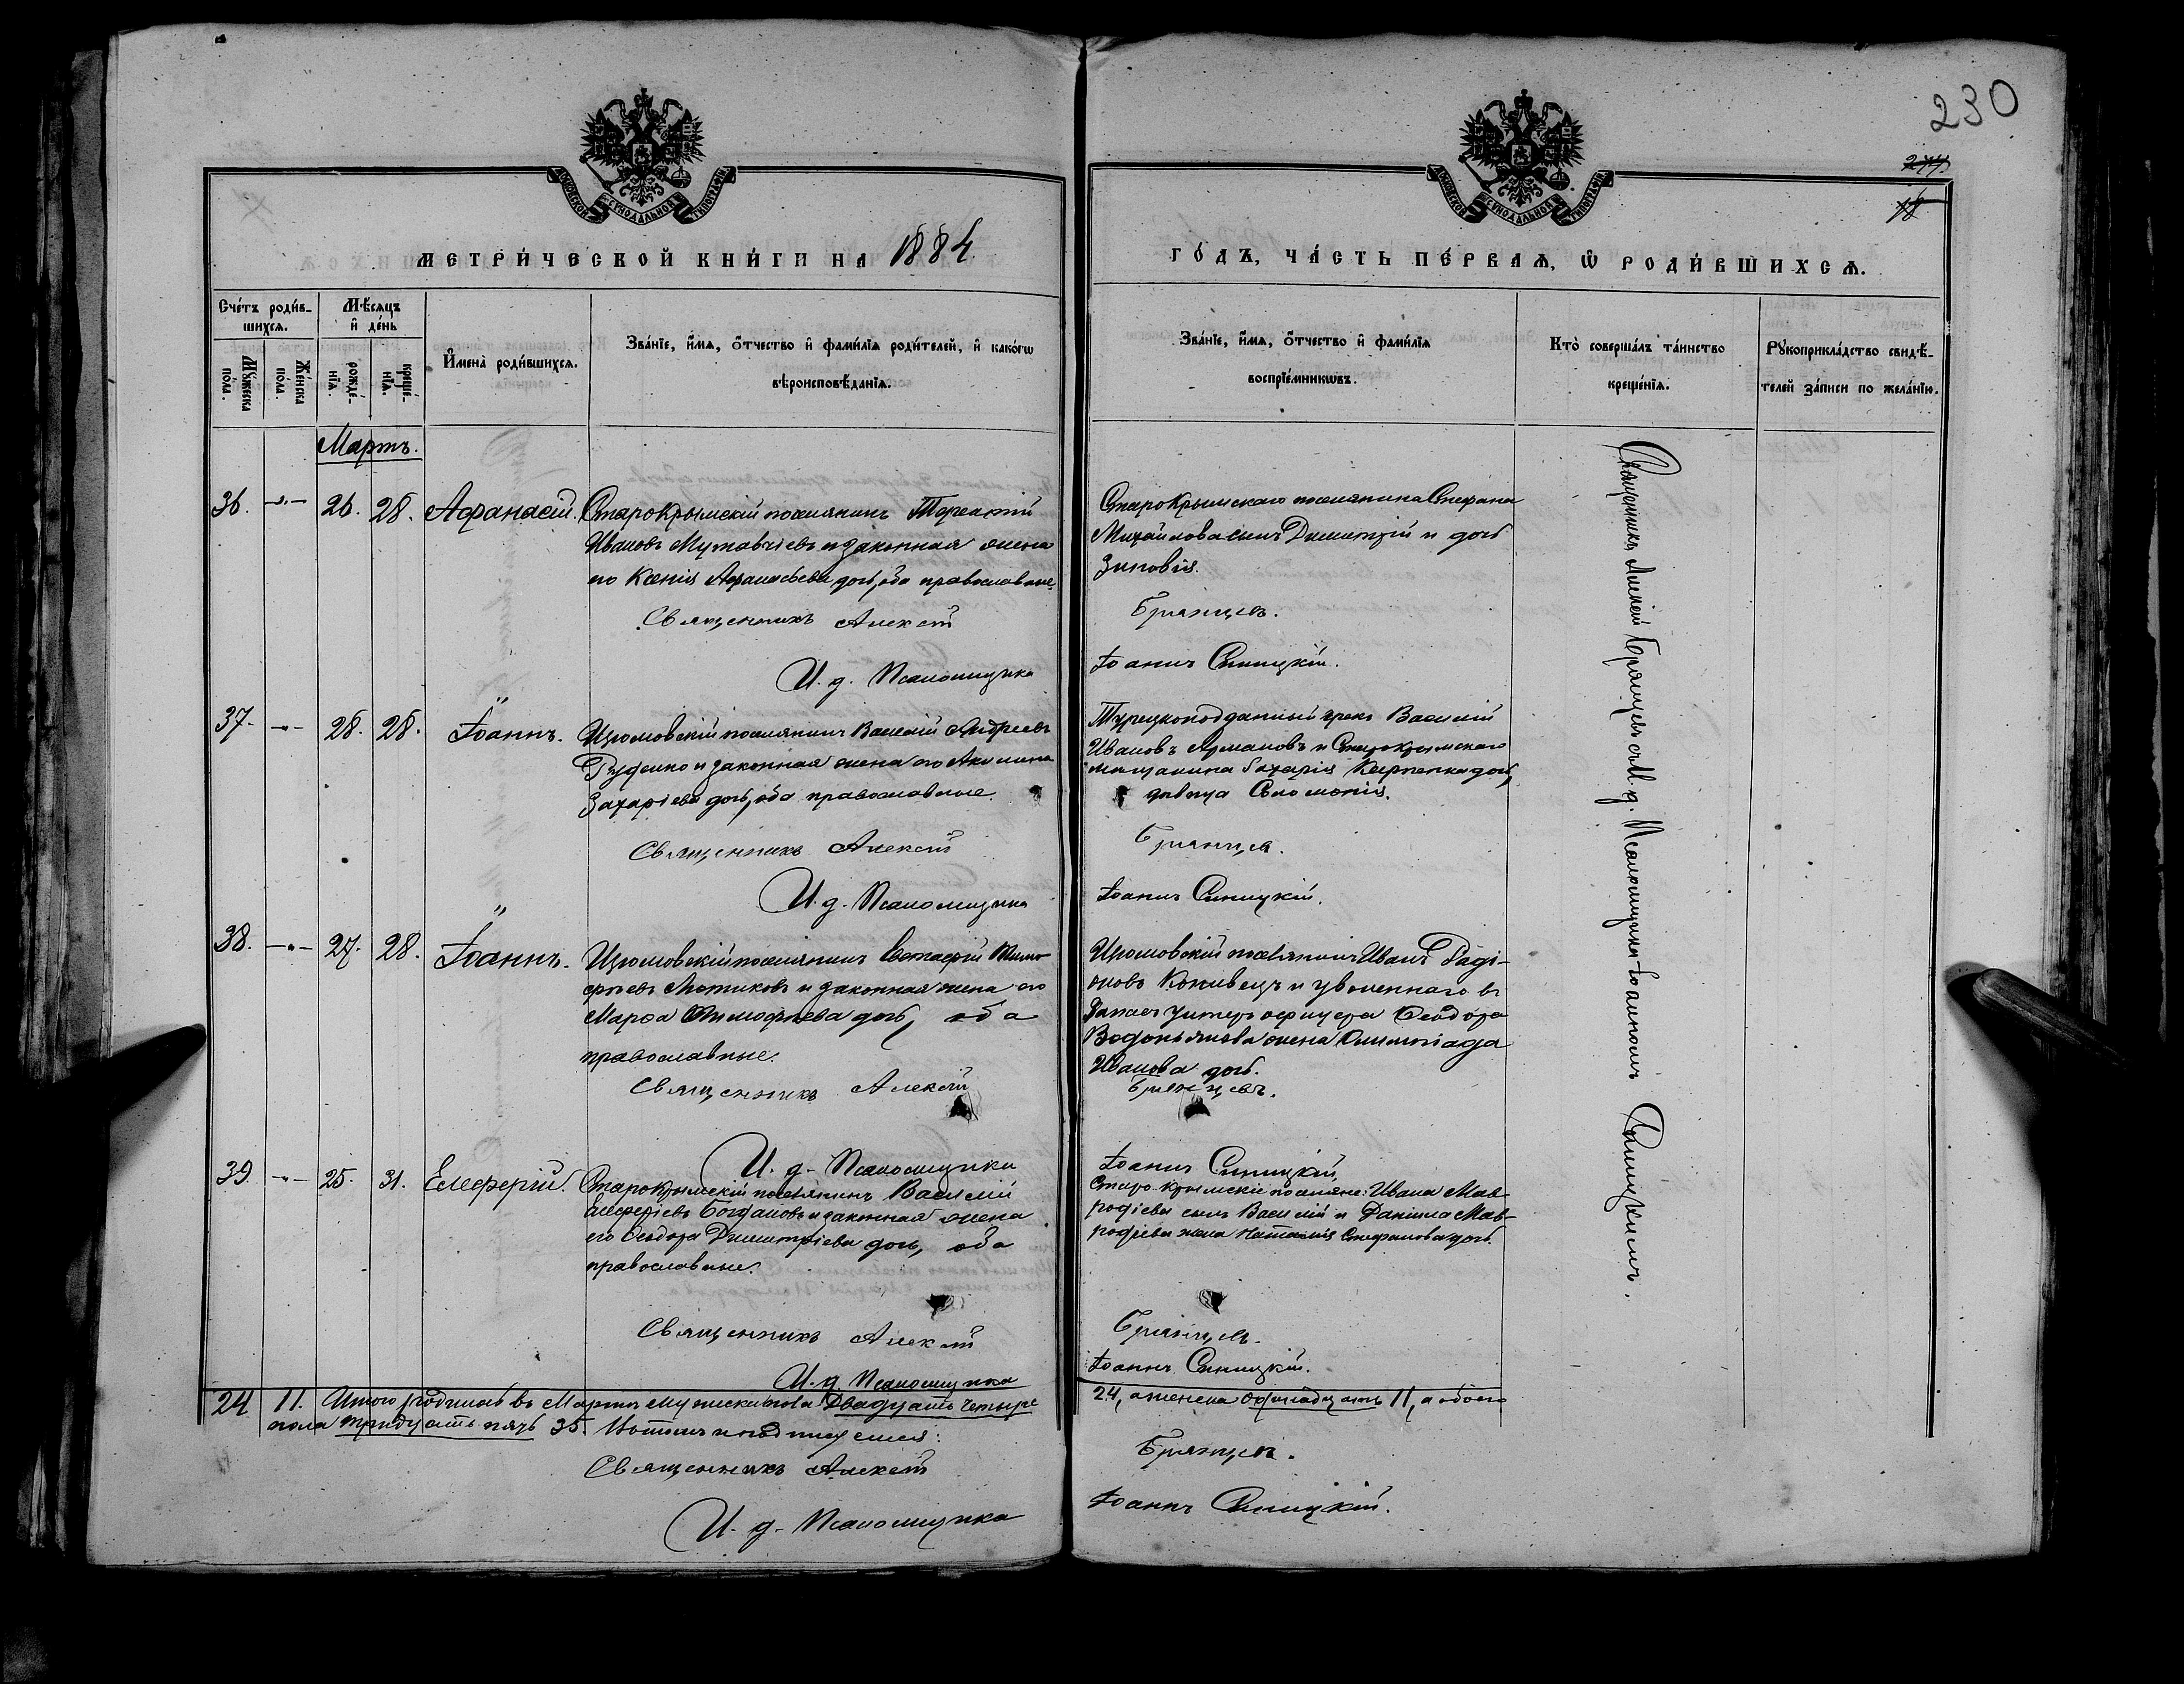 230
277.
18
МОСКОВСКОЙ СѴНОДАЛЬНОЙ ТИПОГРАФІИ
МОСКОВСКОЙ СѴНОДАЛЬНОЙ ТИПОГРАФІИ
МЕТРИ́ЧЕСКОЙ КНИ́ГИ НА 1884
ГО́ДЪ, ЧА́СТЬ ПЕ́РВАѦ, Ѡ҆ РОДИ́ВШИХСѦ.
Сче́тъ роди́в-
шихсѧ.
Мѣ́сяцъ
и҆ де́нь
Мꙋ́жеска
по́ла.
Же́нска
по́ла.
рожде́-
нїѧ.
креще́-
нїѧ.
И҆мена̀ роди́вшихсѧ.
Зва́нїе, и҆́мѧ, о҆́тчество и҆ фами́лїѧ роди́телей, и҆ како́гѡ
вѣроисповѣ́данїѧ.
Зва́нїе, и҆́мѧ, о҆́тчество и҆ фами́лїѧ
воспрїе́мникѡвъ.
Кто̀ соверша́лъ та́инство
креще́нїѧ.
Рꙋкоприкла́дство свидѣ́-
телей за́писи по жела́нїю.
Мартъ.
36. -"- 26. 28. Аѳанасій. Старокрымскій поселянинъ
Ивановъ Мутавчіевъ и законная жена
его Ксенія Аѳанасьева дочь, оба православные.
Священникъ Алексій
И. д. Псаломщика
Старокрымскаго поселянина Стефана
Михайлова сынъ Димитрій и дочь
Зиновія.
Брянцевъ.
Іоаннъ Синицкій.
37. -"- 28. 28. Іоаннъ. Изюмовскій поселянинъ Василій Андреевъ
Руденко и законная жена его Акилина
Захаріева дочь, оба православные.
Священникъ Алексій
И. д. Псаломщика
Турецкоподданный грекъ Василій
Ивановъ Армановъ и Старокрымскаго
мещанина Захарія Карпенка дочь,
девица Соломонія.
Брянцевъ.
Іоаннъ Синицкій.
38. -"- 27. 28. Іоаннъ. Изюмовскій поселянинъ Евстафій Тимо-
феевъ Мотиковъ и законная жена его
Марѳа Тимофеева дочь, оба
православные.
Священникъ Алексій
И. д. Псаломщика
Изюмовскій поселянинъ Иванъ Радi-
оновъ и уволеннаго въ
Запасъ унтеръ офицера Ѳеодора
Водопьянова жена Олимпіада
Иванова дочь.
Брянцевъ.
Іоаннъ Синицкій.
39. -"- 25. 31. Елеферій. Старокрымскій поселянинъ Василій
Елеферіевъ Богдановъ и законная жена
его Ѳеодора Димитріева дочь, оба
православные.
Священникъ Алексій
И. д. Псаломщика
Старо-Крымскіе поселяне: Ивана Мав-
родіева сынъ Василій и Даніила Мав-
родіева жена Наталія Стефанова дочь.
Брянцевъ.
Іоаннъ Синицкій.
Священникъ Алексій Брянцевъ съ И. д. Псаломщика Іоанномъ Синицкимъ.
24 11. Итого родилось въ Мартѣ мужеска пола Двадцать четыре
24, а женска одинадцать 11, а обоего
пола тридцать пять 35. Въ томъ и подписуемся:
Священникъ Алексій
Брянцевъ.
И. д. Псаломщика
Іоаннъ Синицкій.